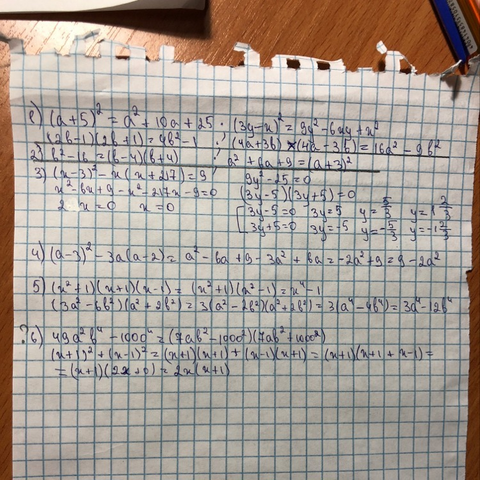 1) (a+5)² = a² + 10a + 25 ; (3y-x)² = 9y² - 6xy + x²
(2b-1)(2b+1) = 4b² - 1 ; (4a+3b)×(4a-3b) = 16a² - 9b²
2) b² - 16 = (b-4)(b+4) ; a² + 6a + 9 = (a+3)²
3) (x-3)² - x(x+217) = 9
x² - 6x + 9 - x² - 217x - 9 = 0
x = 0 x = 0
9y² - 25 = 0
(3y-5)(3y+5) = 0
3y-5=0 3y=5 y=5/3 y=1 2/3
3y+5=0 3y=-5 y=-5/3 y=-1 2/3
4) (a-3)² - 3a(a-2) = a² - 6a + 9 - 3a² + 6a = -2a² + 9 = 9 - 2a²
5) (x²+1)(x+1)(x-1) = (x²+1)(x²-1) = x⁴ - 1
(3a² - 6b²)(a² + 2b²) = 3(a² - 2b²)(a² + 2b²) = 3(a⁴ - 4b⁴) = 3a⁴ - 12b⁴
?6) 49a²b⁴ - 100c⁴ = (7ab² - 10c²)(7ab² + 10c²)
(x+1)² + (x-1)² = (x+1)(x+1) + (x-1)(x+1) = (x+1)(x+1+x-1) =
= (x+1)(2x+0) = 2x(x+1)